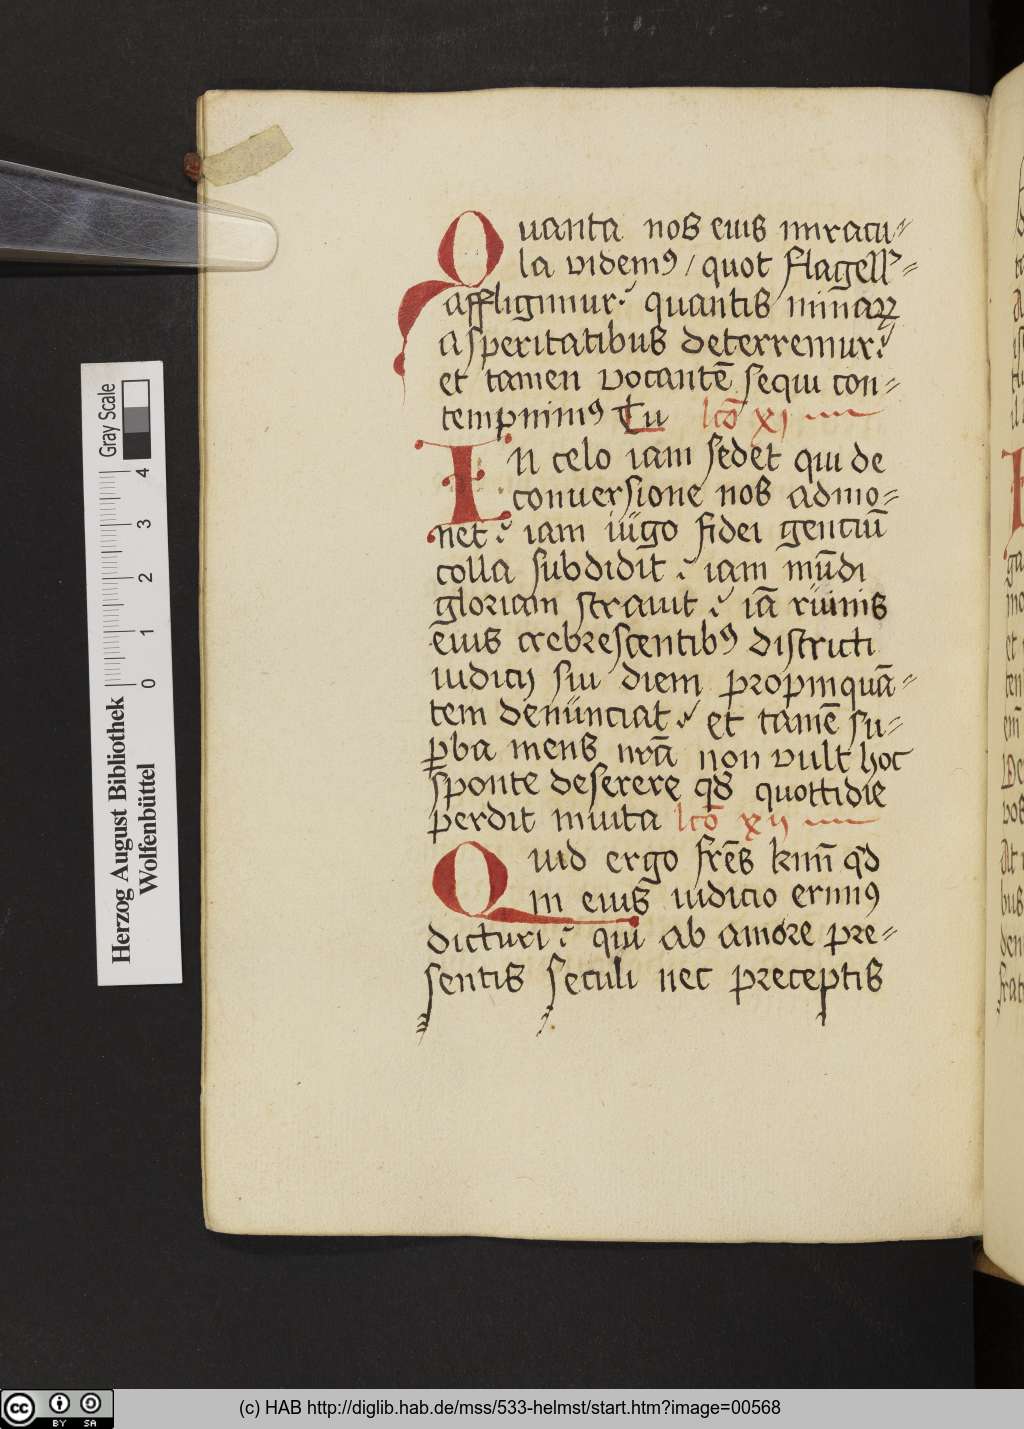 Quanta nos eius miracu⸗
la videmꝰ / quot flagell'⸗
affligimur: quantis minaꝝ
asperitatibus deterremur:
et tamen vocantē sequi con⸗
tempnimꝰ Tu lcō xj
In celo iam sedet qui de
conuersione nos admo⸗
net: iam iugo fidei genciū
colla subdidit: iam mūdi
gloriam strauit: iā ruinis
eius crebrescentibꝰ districti
iudicij sui diem propinquā⸗
tem denunciat: et tamē su⸗
ꝑba mens nrā non vult hoc
sponte deserere qd' quottidie
perdit inuita lcō xij
Quid ergo frēs kmī qd
in eius iudicio erimꝰ
dicturi: qui ab amore pre⸗
sentis seculi nec preceptis
Gray Scale
4
3
2
1
0
Herzog August Bibliothek
Wolfenbüttel
cc BY SA
(c) HAB http://diglib.hab.de/mss/533-helmst/start.htm?image=00568